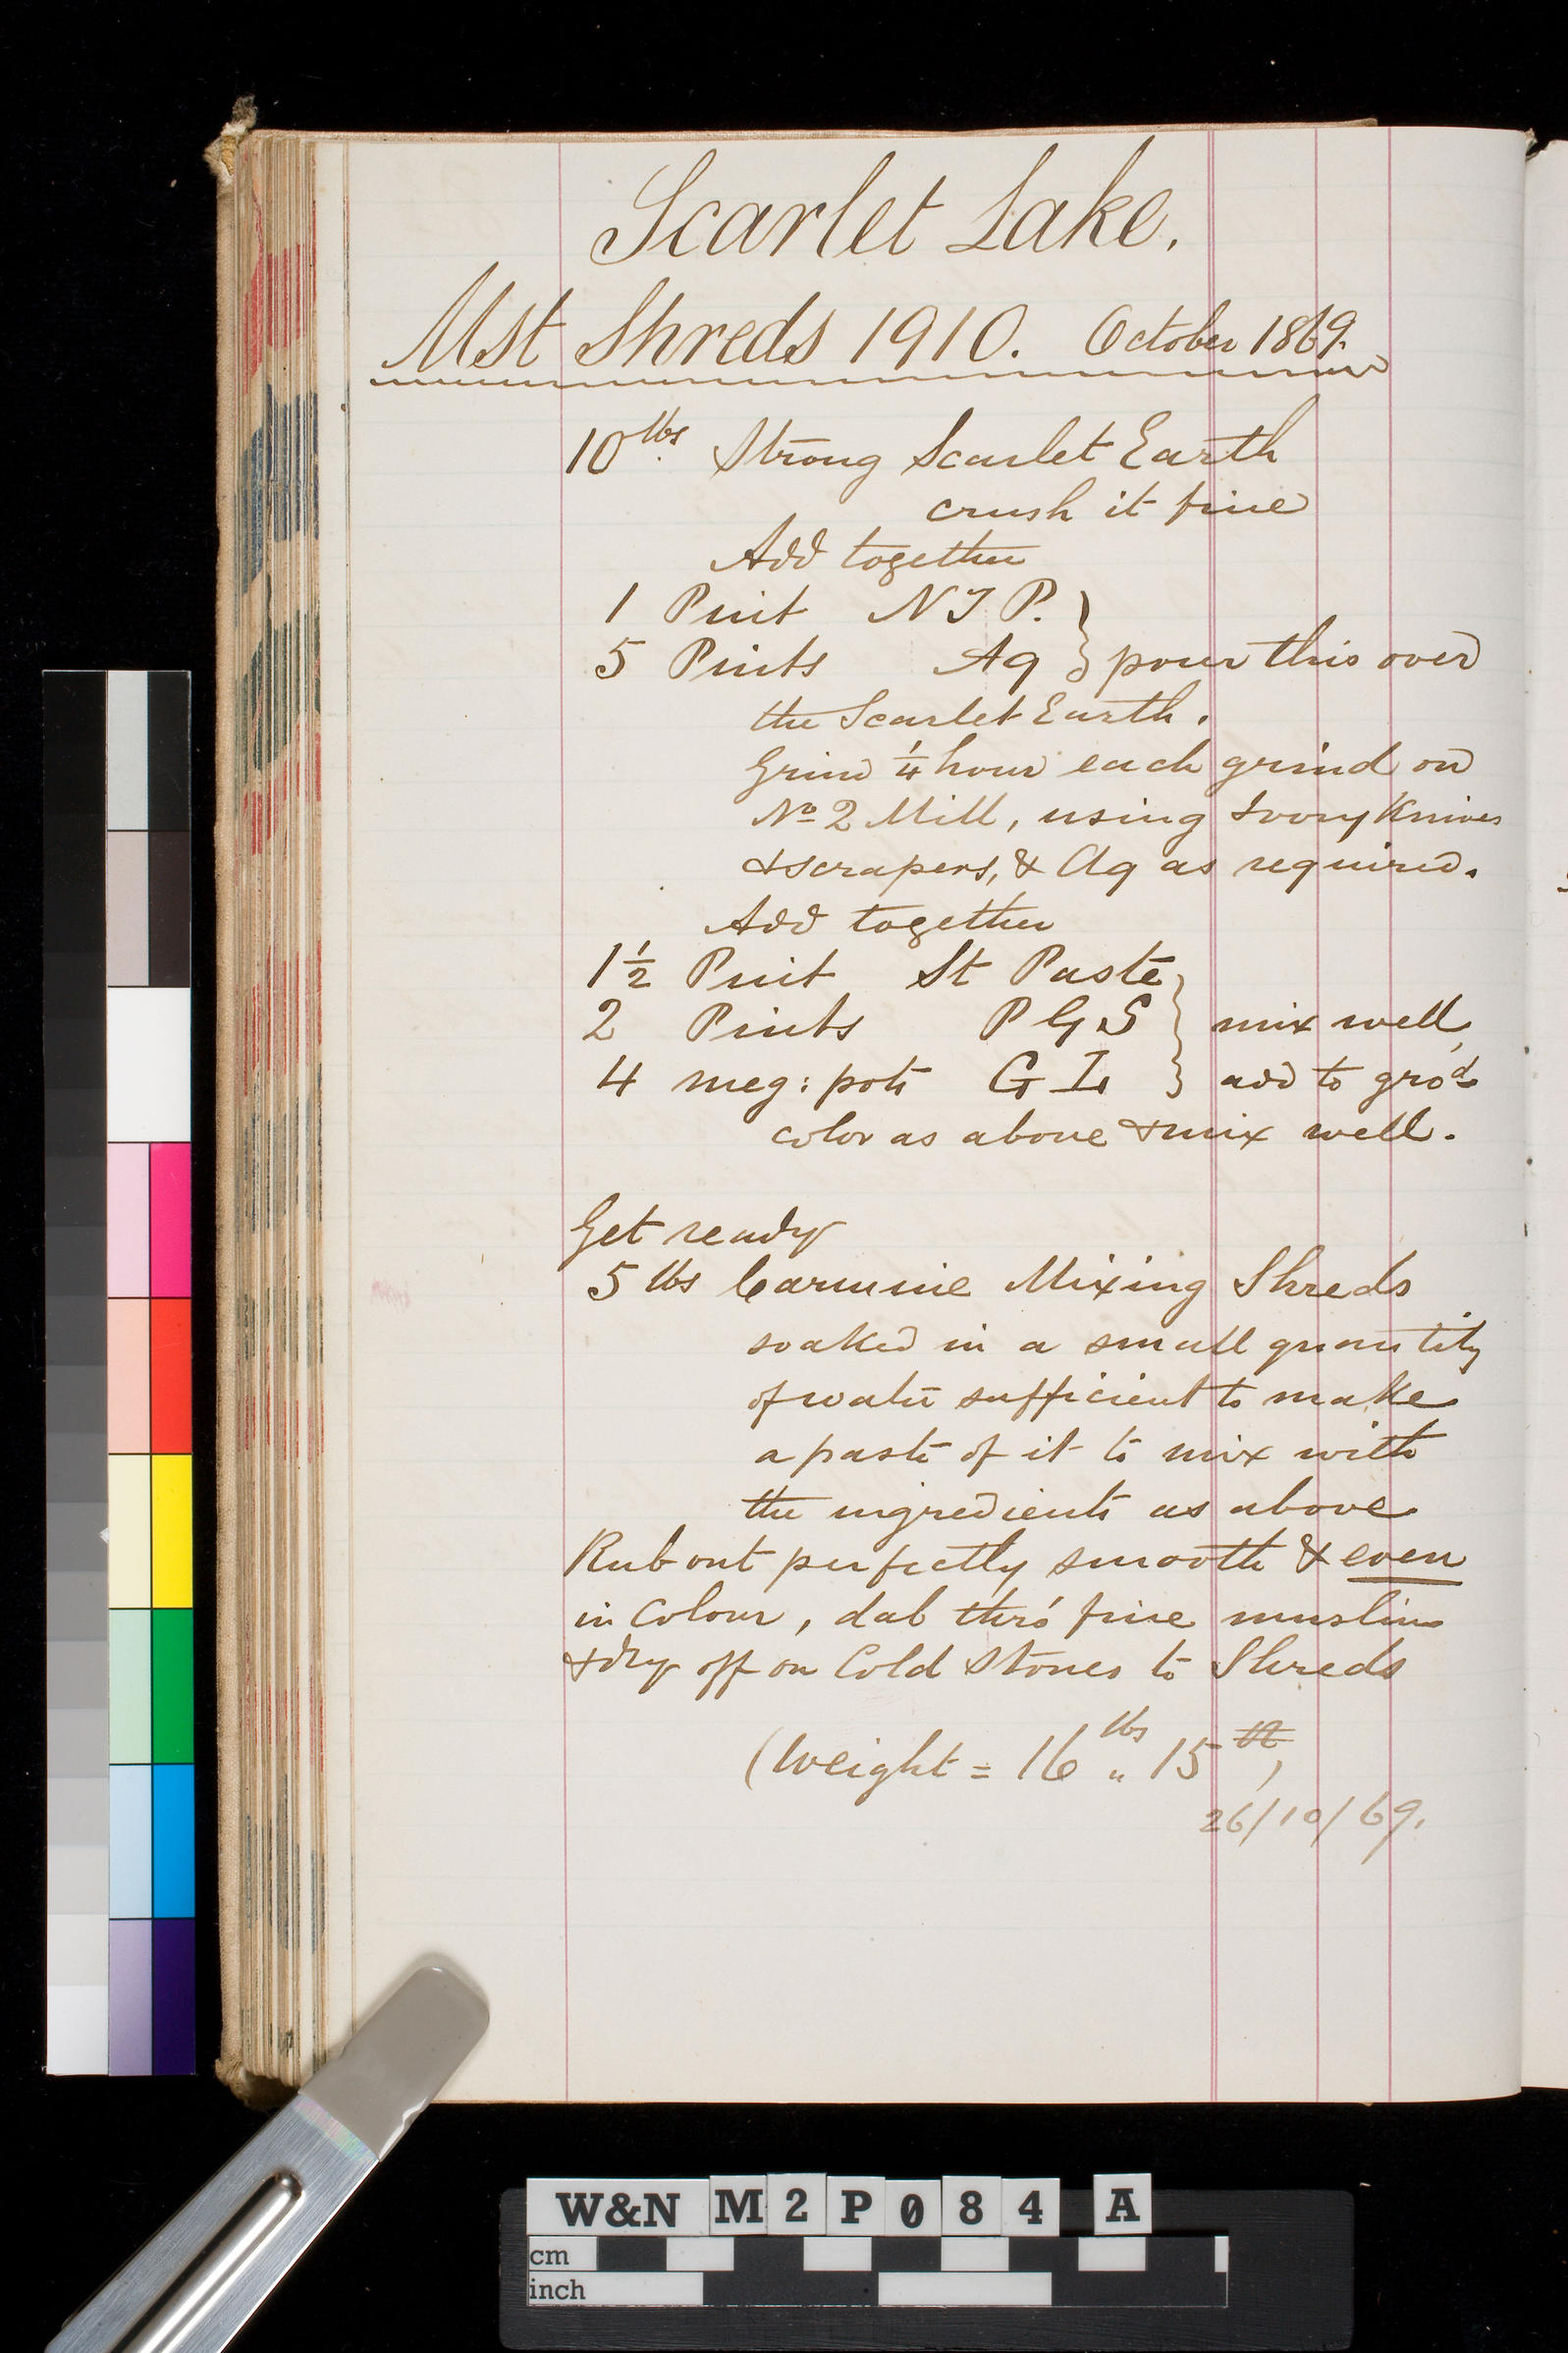 Scarlet Lake.
Mst Shreds 1910. October 1869.
10 lbs. Strong Scarlet Earth
crush it fine
Add together
1 Pint N J P. }
5 Pints Aq } pour this over
the Scarlet Earth.
Grind 1/4 hour each grind on
No 2 Mill, using Ivory Knives
& scrapers, & Aq as required.
Add together
1 1/2 Pint St Paste }
2 Pints P G S } mix well,
4 meg: pots G L } add to gro'd
color as above & mix well.
Get ready
5 lbs Carmine Mixing Shreds
soaked in a small quantity
of water sufficient to make
a paste of it to mix with
the ingredients as above
Rub out perfectly smooth & even
in Colour, dab thro' fine muslin
& dry off on Cold Stones to Shreds
(Weight = 16 lbs " 15
26/10/69.
W&N M2P084 A
cm
inch